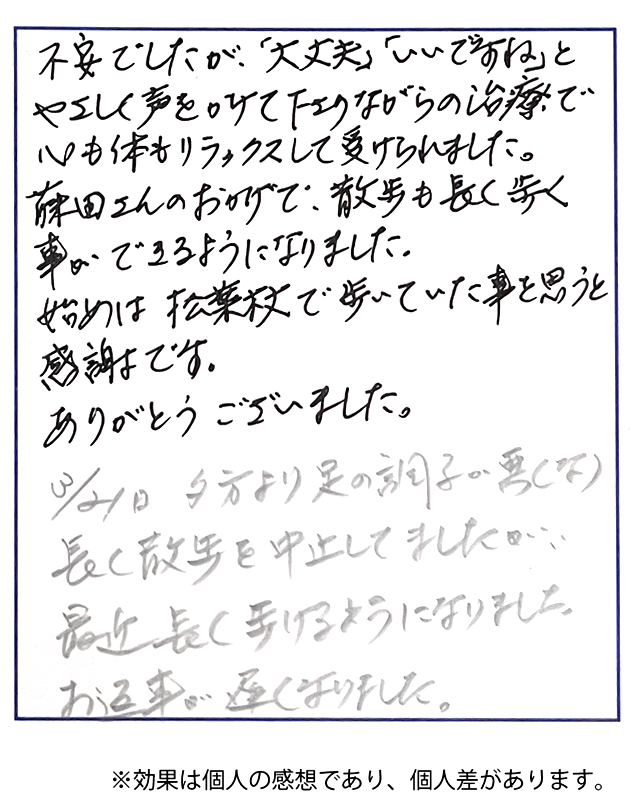 不安でしたが、「大丈夫」「いいですね」と
やさしく声をかけて下さりながらの治療で
心も体もリラックスして受けられました。
藤田さんのおかげで、散歩も長く歩く
事ができるようになりました。
始めは松葉杖で歩いていた事を思うと
感謝です。
ありがとうございました。
3/21日 夕方より足の調子が悪くなり
長く散歩を中止してましたが…
最近長く歩けるようになりました。
お返事が遅くなりました。
※効果は個人の感想であり、個人差があります。